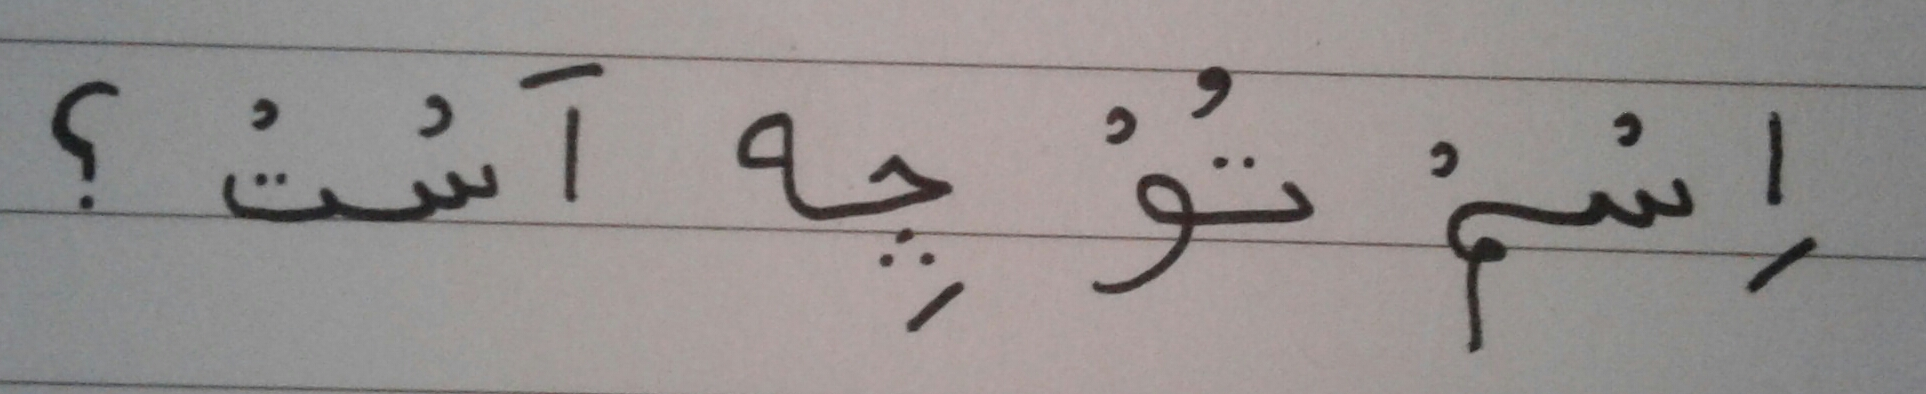 اِسْمْ تُوْ چِه اَسْتْ ؟